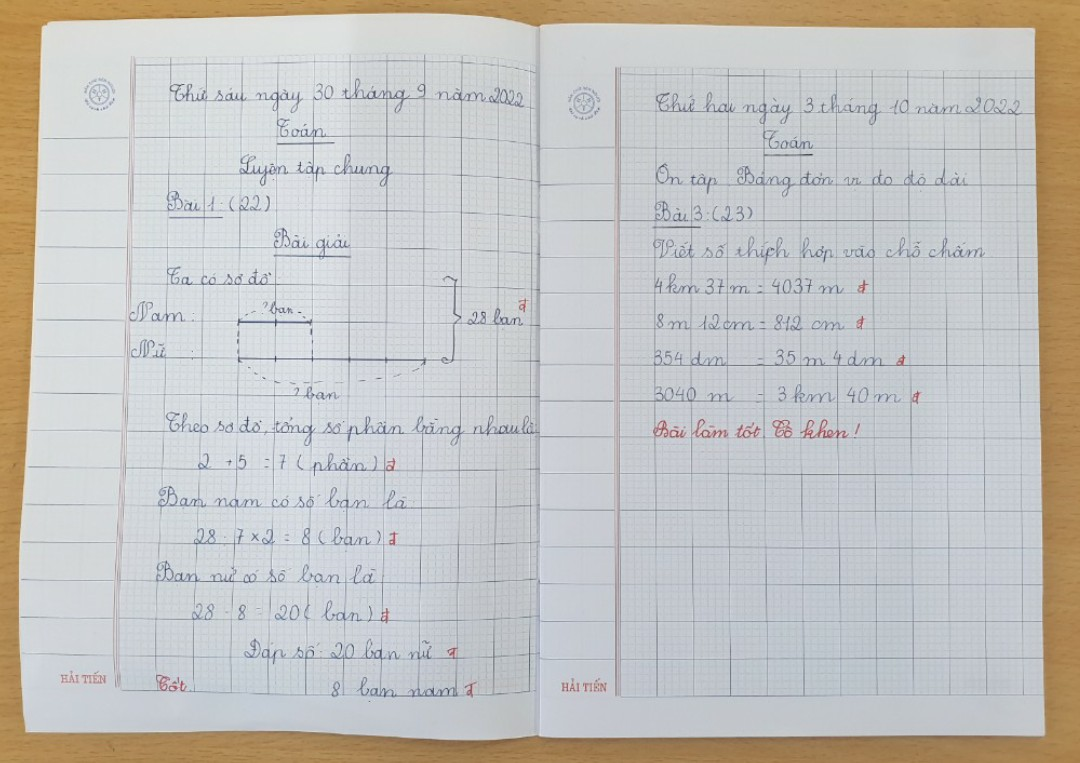 Thứ sáu ngày 30 tháng 9 năm 2022
Toán
Luyện tập chung
Bài 1: (22)
Bài giải
Ta có sơ đồ:
? bạn
Nam:
28 bạn đ
Nữ:
? bạn
Theo sơ đồ, tổng số phần bằng nhau là
2 + 5 = 7 (phần) đ
Bạn nam có số bạn là
28 : 7 × 2 = 8 (bạn) đ
Bạn nữ có số bạn là
28 - 8 = 20 (bạn) đ
Đáp số: 20 bạn nữ đ
8 bạn nam đ
Tốt
HẢI TIẾN
Thứ hai ngày 3 tháng 10 năm 2022
Toán
Ôn tập Bảng đơn vị đo độ dài
Bài 3: (23)
Viết số thích hợp vào chỗ chấm
4km 37 m = 4037 m đ
8 m 12cm = 812 cm đ
354 dm = 35 m 4 dm đ
3040 m = 3 km 40 m đ
Bài làm tốt Cô khen!
HẢI TIẾN